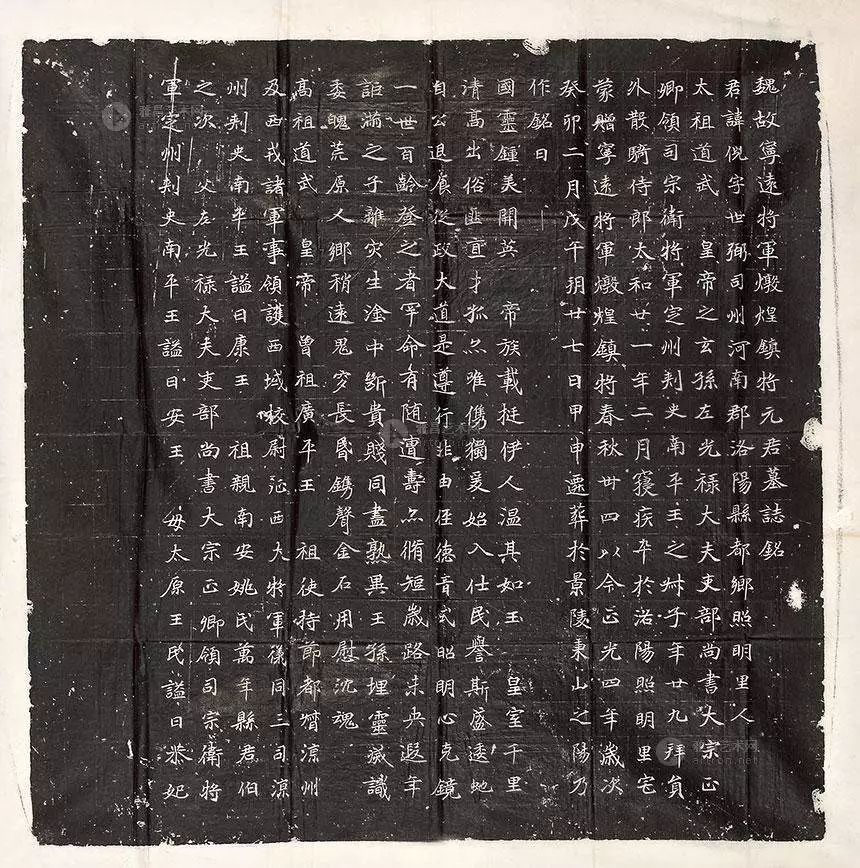 魏故寧遠將軍燉煌鎮將元君墓誌銘
君諱倪字世弼司州河南郡洛陽縣都鄉照明里人
太祖道武 皇帝之玄孫左光祿大夫吏部尚書大宗正
卿領司宗衛將軍定州刾史南平王之外子年廿九拜員
外散騎侍郎太和廿一年二月寢疾卒於洛陽照明里宅
蒙贈寧遠將軍燉煌鎮將春秋卅四以今正光四年歲次
癸卯二月戊午朔廿七日甲申遷葬於景陵東山之陽乃
作銘曰
國靈鍾美開英 帝族載挺伊人温其如玉 皇室千里
清高出俗匪直才孤亦唯儁獨爰始入仕民譽斯盛逶虵
自公退食從政大道是遵行非由徑德音式昭明心克鏡
一世百齡登之者罕命有随遭壽亦脩短歲路未央遐年
詎滿之子離灾生淦中斷貴賤同盡熟異王孫埋靈藏識
委魄荒原人鄉稍遠鬼穸長昏鐫聲金石用慰沈魂
高祖道武 皇帝 曾祖廣平王 祖使持節都督涼州
及西戎諸軍事領護西域校尉征西大將軍儀同三司涼
州刾史南平王謚曰康王 祖親南安姚氏萬年縣君伯
之次 父左光祿大夫吏部尚書大宗正卿領司宗衛將
軍定州刾史南平王謚曰安王 母太原王氏謚曰恭妃